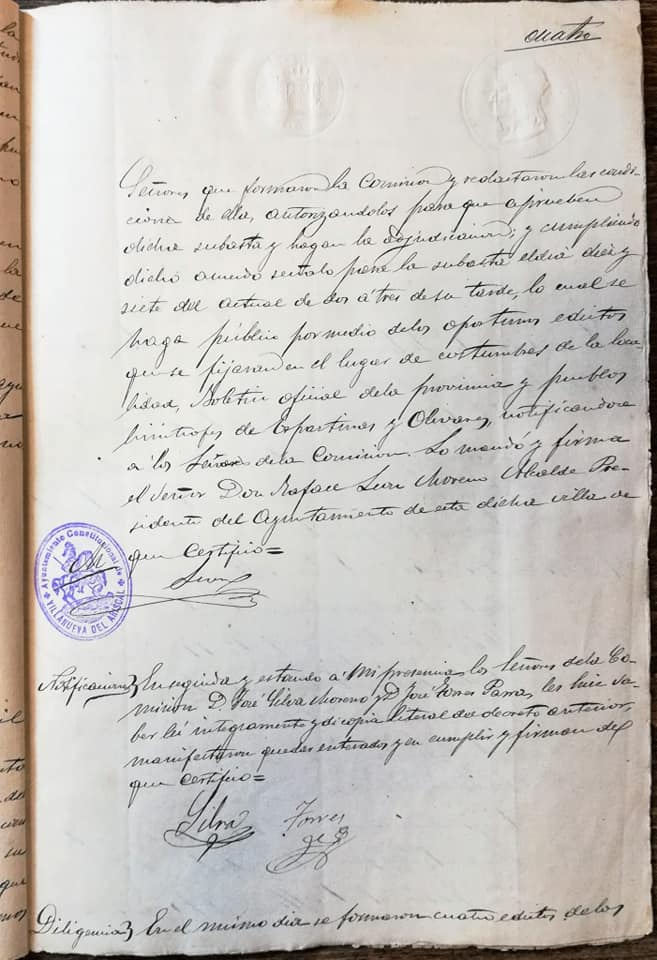 cuatro
Señores que formaron la Comision y redactaron las condi-
ciones de ella, autorizandolos para que aprueben
dicha subasta y hagan la adjudicacion; y cumpliendo
dicho acuerdo señalo para la subasta el dia diez y
siete del actual de dos á tres de su tarde, lo cual se
haga público por medio de los oportunos edictos
que se fijarán en el lugar de costumbres de la loca-
lidad, Boletin oficial de la provincia y pueblos
limitrofes de Espartinas y Olivares, notificandose
á los Señores de la Comision. Lo mando y firma
el Señor Don Rafael Leon Moreno Alcalde Pre-
sidente del Ayuntamiento de esta dicha villa de
que certifico=
Ayuntamiento Constitucional de
VILLANUEVA DEL ARISCAL
Leon
Notificacion} En seguida y estando á mi presencia los Señores de la Co-
mision D. José Silva Moreno y D. José Torres Parra, les hice sa-
ber lei integramente y di copia literal del decreto anterior,
manifestaron quedar enterados y en cumplir y firman de
que certifico=
Silva Torres
Diligencia} En el mismo dia se formaron cuatro edictos de los